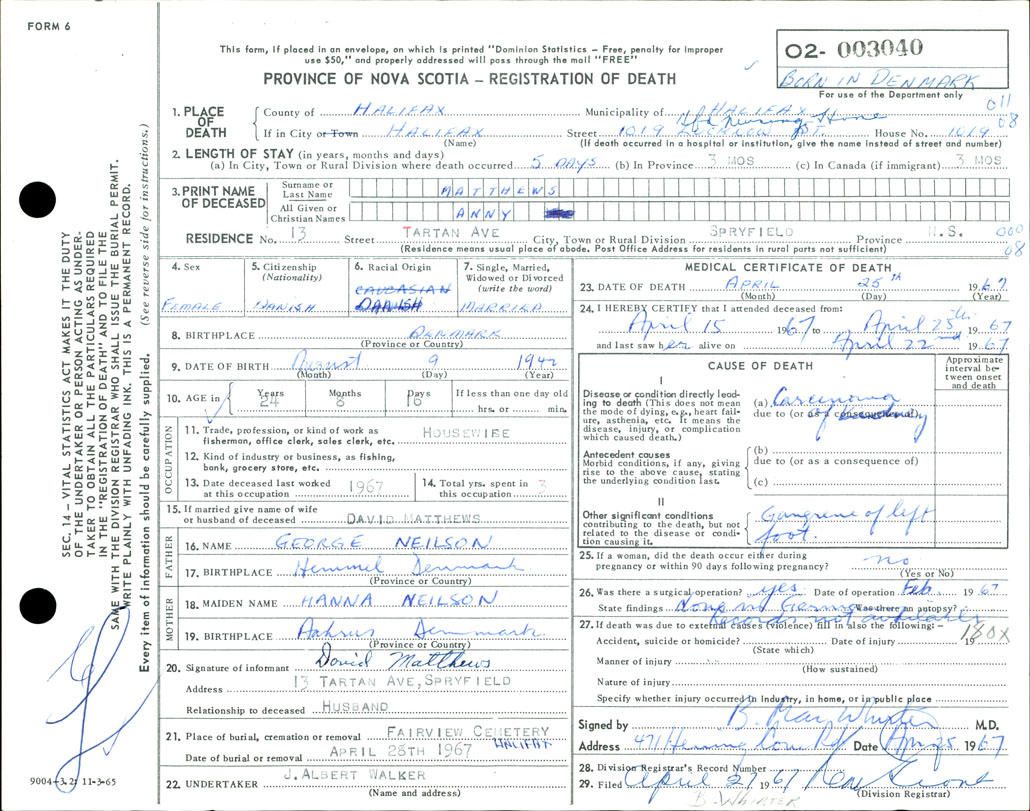 FORM 6
This form, if placed in an envelope, on which is printed "Dominion Statistics – Free, penalty for improper
use $50," and properly addressed will pass through the mail "FREE"
PROVINCE OF NOVA SCOTIA – REGISTRATION OF DEATH
02- 003040
BORN IN DENMARK
For use of the Department only
011
08
1. PLACE OF DEATH
County of HALIFAX Municipality of HALIFAX
Nursing Home
If in City or Town HALIFAX Street 1019 St. House No. 1019
(Name) (If death occurred in a hospital or institution, give the name instead of street and number)
2. LENGTH OF STAY (in years, months and days)
(a) In City, Town or Rural Division where death occurred 5 DAYS (b) In Province 3 MOS (c) In Canada (if immigrant) 3 MOS
3. PRINT NAME OF DECEASED
Surname or Last Name MATTHEWS
All Given or Christian Names ANNY
RESIDENCE No. 13 Street TARTAN AVE City, Town or Rural Division SPRYFIELD Province N.S.
(Residence means usual place of abode. Post Office Address for residents in rural parts not sufficient)
000
08
4. Sex
FEMALE
5. Citizenship
(Nationality)
DANISH
6. Racial Origin
CAUCASIAN
DANISH
7. Single, Married,
Widowed or Divorced
(write the word)
MARRIED
8. BIRTHPLACE DENMARK
(Province or Country)
9. DATE OF BIRTH August 9 1942
(Month) (Day) (Year)
10. AGE in
Years Months Days If less than one day old
24 8 16 hrs. or min.
OCCUPATION
11. Trade, profession, or kind of work as
fisherman, office clerk, sales clerk, etc. HOUSEWIFE
12. Kind of industry or business, as fishing,
bank, grocery store, etc.
13. Date deceased last worked
at this occupation 1967
14. Total yrs. spent in
this occupation 3
15. If married give name of wife
or husband of deceased DAVID MATTHEWS
FATHER
16. NAME GEORGE NEILSON
17. BIRTHPLACE Hemmel Denmark
(Province or Country)
MOTHER
18. MAIDEN NAME HANNA NEILSON
19. BIRTHPLACE Aahrus Denmark
(Province or Country)
20. Signature of informant David Matthews
Address 13 TARTAN AVE, SPRYFIELD
Relationship to deceased HUSBAND
21. Place of burial, cremation or removal FAIRVIEW CEMETERY
HALIFAX
Date of burial or removal APRIL 28TH 1967
22. UNDERTAKER J. ALBERT WALKER
(Name and address)
MEDICAL CERTIFICATE OF DEATH
23. DATE OF DEATH APRIL 25TH 1967
(Month) (Day) (Year)
24. I HEREBY CERTIFY that I attended deceased from:
April 15 1967 to April 25th 1967
and last saw her alive on April 22nd 1967
CAUSE OF DEATH
Approximate interval between onset and death
I
Disease or condition directly leading to death (This does not mean the mode of dying, e.g., heart failure, asthenia, etc. It means the disease, injury, or complication which caused death.)
(a) Carcinoma
due to (or as a consequence of)
of kidney
Antecedent causes
Morbid conditions, if any, giving rise to the above cause, stating the underlying condition last.
(b)
due to (or as a consequence of)
(c)
II
Other significant conditions
contributing to the death, but not related to the disease or condition causing it.
Gangrene of left
foot.
25. If a woman, did the death occur either during
pregnancy or within 90 days following pregnancy? no
(Yes or No)
26. Was there a surgical operation? yes Date of operation Feb 1967
State findings Done in Germany Was there an autopsy?
Records not available
27. If death was due to external causes (violence) fill in also the following:–
180X
Accident, suicide or homicide? Date of injury 19
(State which)
Manner of injury
(How sustained)
Nature of injury
Specify whether injury occurred in industry, in home, or in public place
Signed by B. MacWhirter M.D.
Address 471 Herring Cove Rd Date Apr 25 1967
28. Division Registrar's Record Number
29. Filed April 27 1967
(Division Registrar)
B. WHIRTER
SEC. 14 – VITAL STATISTICS ACT MAKES IT THE DUTY
OF THE UNDERTAKER OR PERSON ACTING AS UNDER-
TAKER TO OBTAIN ALL THE PARTICULARS REQUIRED
IN THE "REGISTRATION OF DEATH" AND TO FILE THE
SAME WITH THE DIVISION REGISTRAR WHO SHALL ISSUE THE BURIAL PERMIT.
WRITE PLAINLY WITH UNFADING INK. THIS IS A PERMANENT RECORD.
Every item of information should be carefully supplied. (See reverse side for instructions.)
9004-3.2: 11-3-65